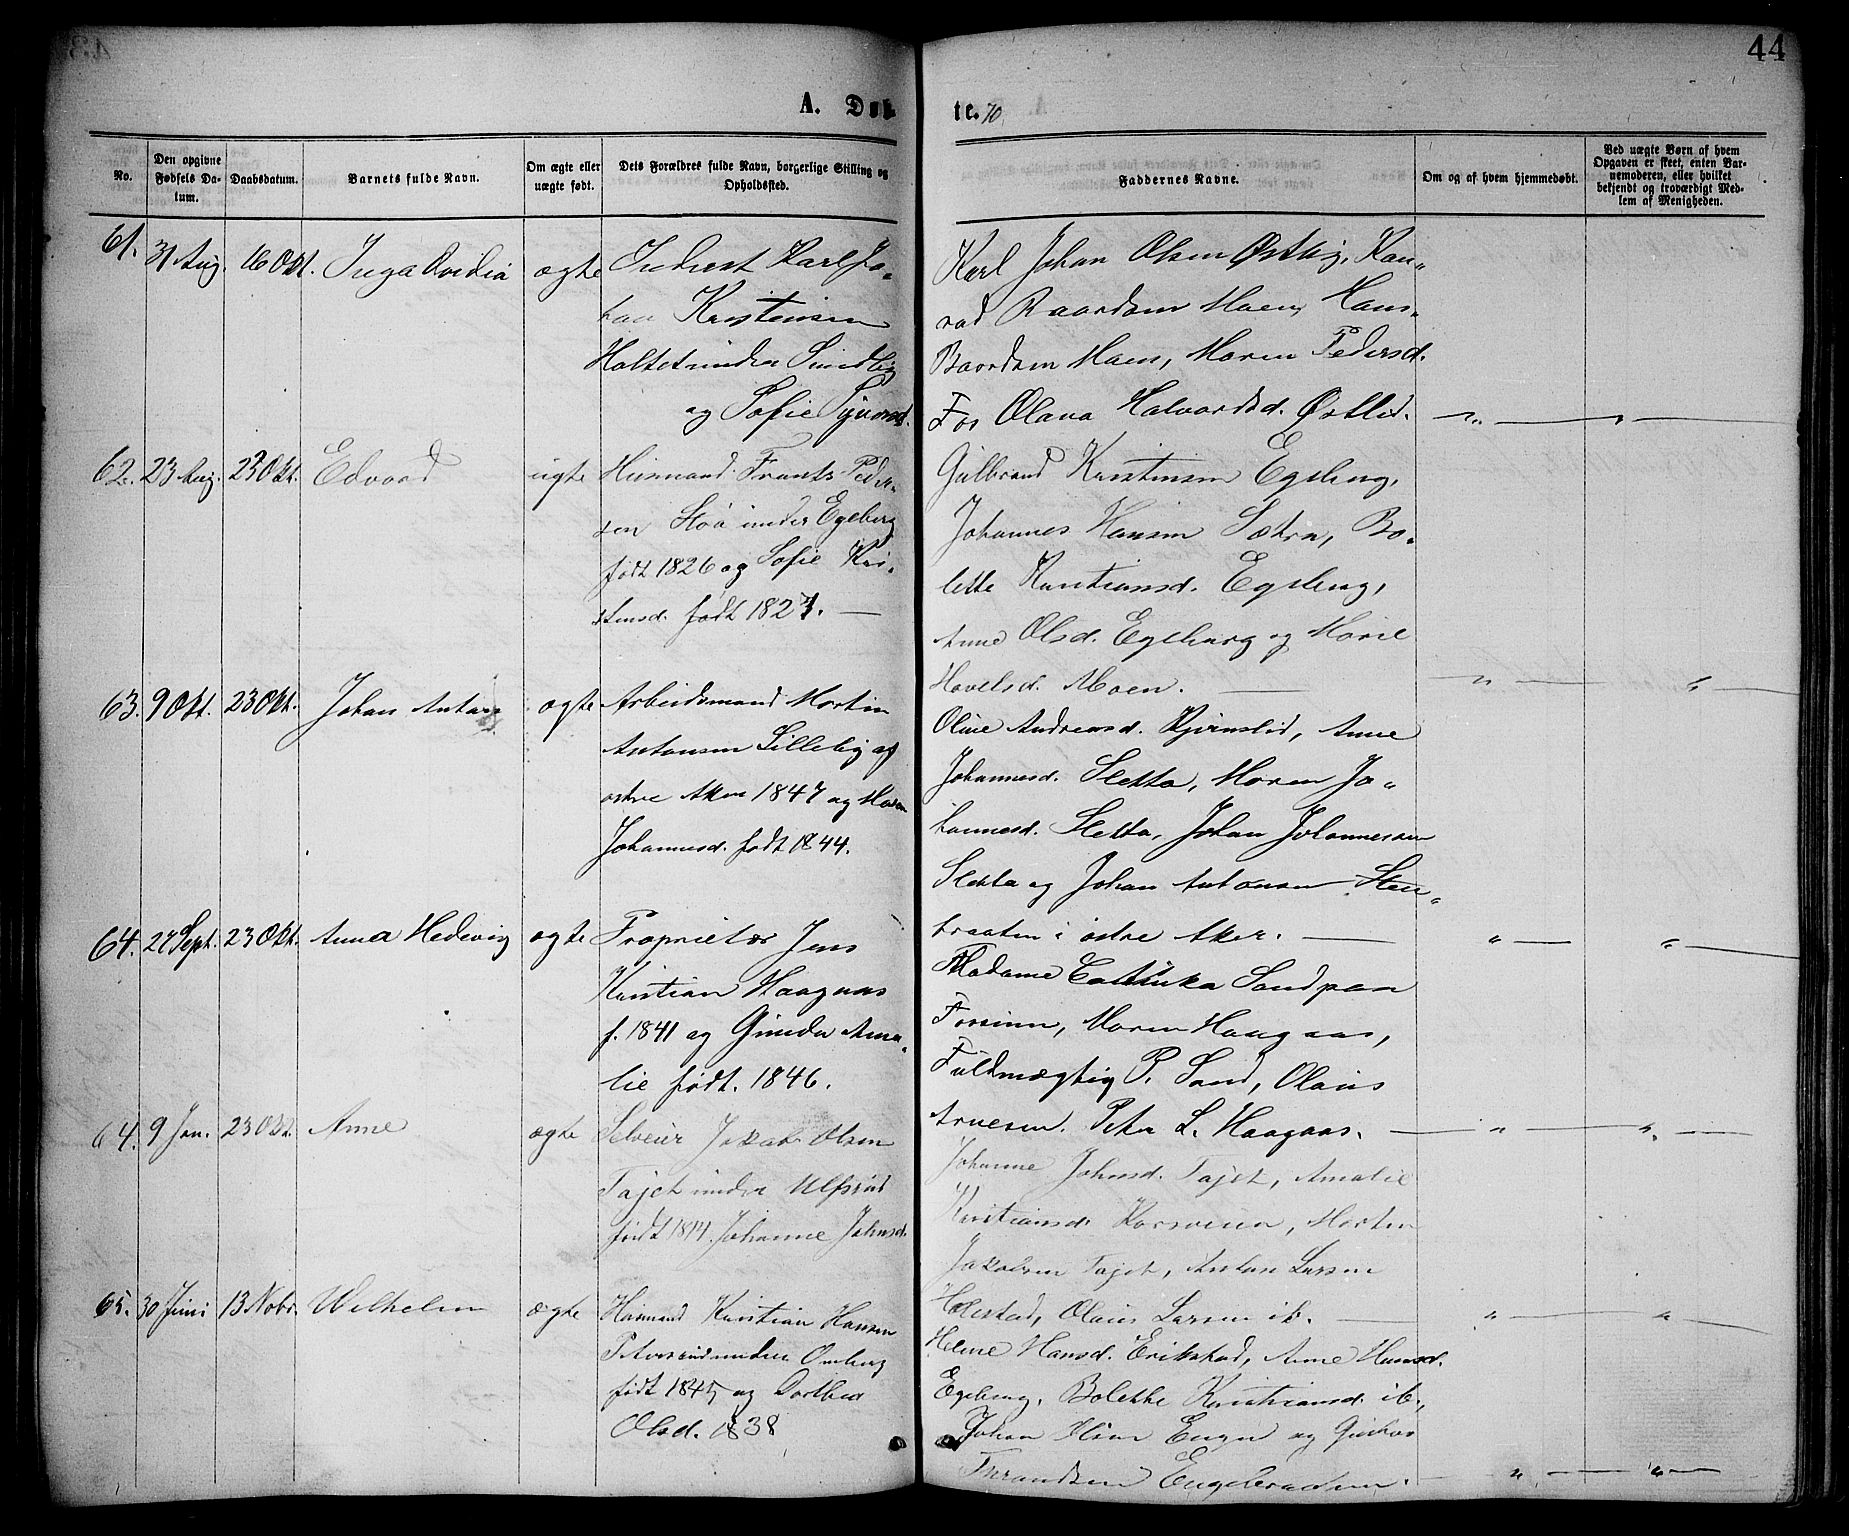 44
A. Døb-
te. 70
No.
Den opgivne
Fødsels Da-
tum.
Daabsdatum.
Barnets fulde Navn.
Om ægte eller
uægte født.
Dets Forældres fulde Navn, borgerlige Stilling og
Opholdssted.
Faddernes Navne.
Om og af hvem hjemmedøbt.
Ved uægte Børn af hvem
Opgaven er skeet, enten Bar-
nemoderen, eller hvilket
bekjendt og troværdigt Med-
lem af Menigheden.
61.
31 Aug.
16 Okt.
Inga
ægte
Inderst Karl Jo-
han Kristensen
Holtet under
og Sofie
Karl Johan Olsen Østby, Kon-
rad Baardsen Moen, Hans
Baardsen Moen, Maren Pedersd.
Fos Olava Halvorsd. Østli.
62.
23 Aug.
23 Okt.
Edvard
ægte
Husmand Frants Peder-
sen Stöa under Egeberg
født 1826 og Sofie Kri-
stensd. født 1827. —
Gulbrand Kristensen Egeberg,
Johannes Hansen Sætra, Bo-
lette Kristiansd. Egeberg,
Anne Olsd. Egeberg og Marie
Hovelsd. Moen. —
63.
9 Okt.
23 Okt.
Johan Anton
ægte
Arbeidsmand Morten
Antonsen Lilleby af
østre Aker 1847 og Maren
Johannesd. født 1844.
Oline Andreasd. Anne
Johannesd. Sletta, Maren Jo-
hannesd. Sletta, Johan Johannesen
Sletta og Johan Antonsen Sten-
braaten i østre Aker. —
64.
27 Sept.
23 Okt.
Anna Hedevig
ægte
Proprietær Jens
Kristian Haagaas
f. 1841 og Gunda Ama-
lie født. 1846.
Madame
Maren Haagaas,
Fuldmægtig P. Sand, Olaus
Arnesen. Peter L. Haagaas. —
64.
9 Jan.
23 Okt.
Anne
ægte
Selveier Jakob Olsen
Tajet under Ulfsrud
født Johanne Johnsd.
Johanne Johnsd. Tajet, Amalie
Kristiansd. Korsveien, Morten
Jakobsen Tajet, Anton Larsen
Holestad, Olaus Larsen ib. —
65.
30 Juni
13 Nobr.
Wilhelm
ægte
Husmand Kristian Hansen
under Omberg
født 1845 og Dorthea
Olsd. 1838
Helene Hansd. Erikstad, Anne Hansd.
Egeberg, Bolette Kristiansd. ib.,
Johan Olsen Engen og